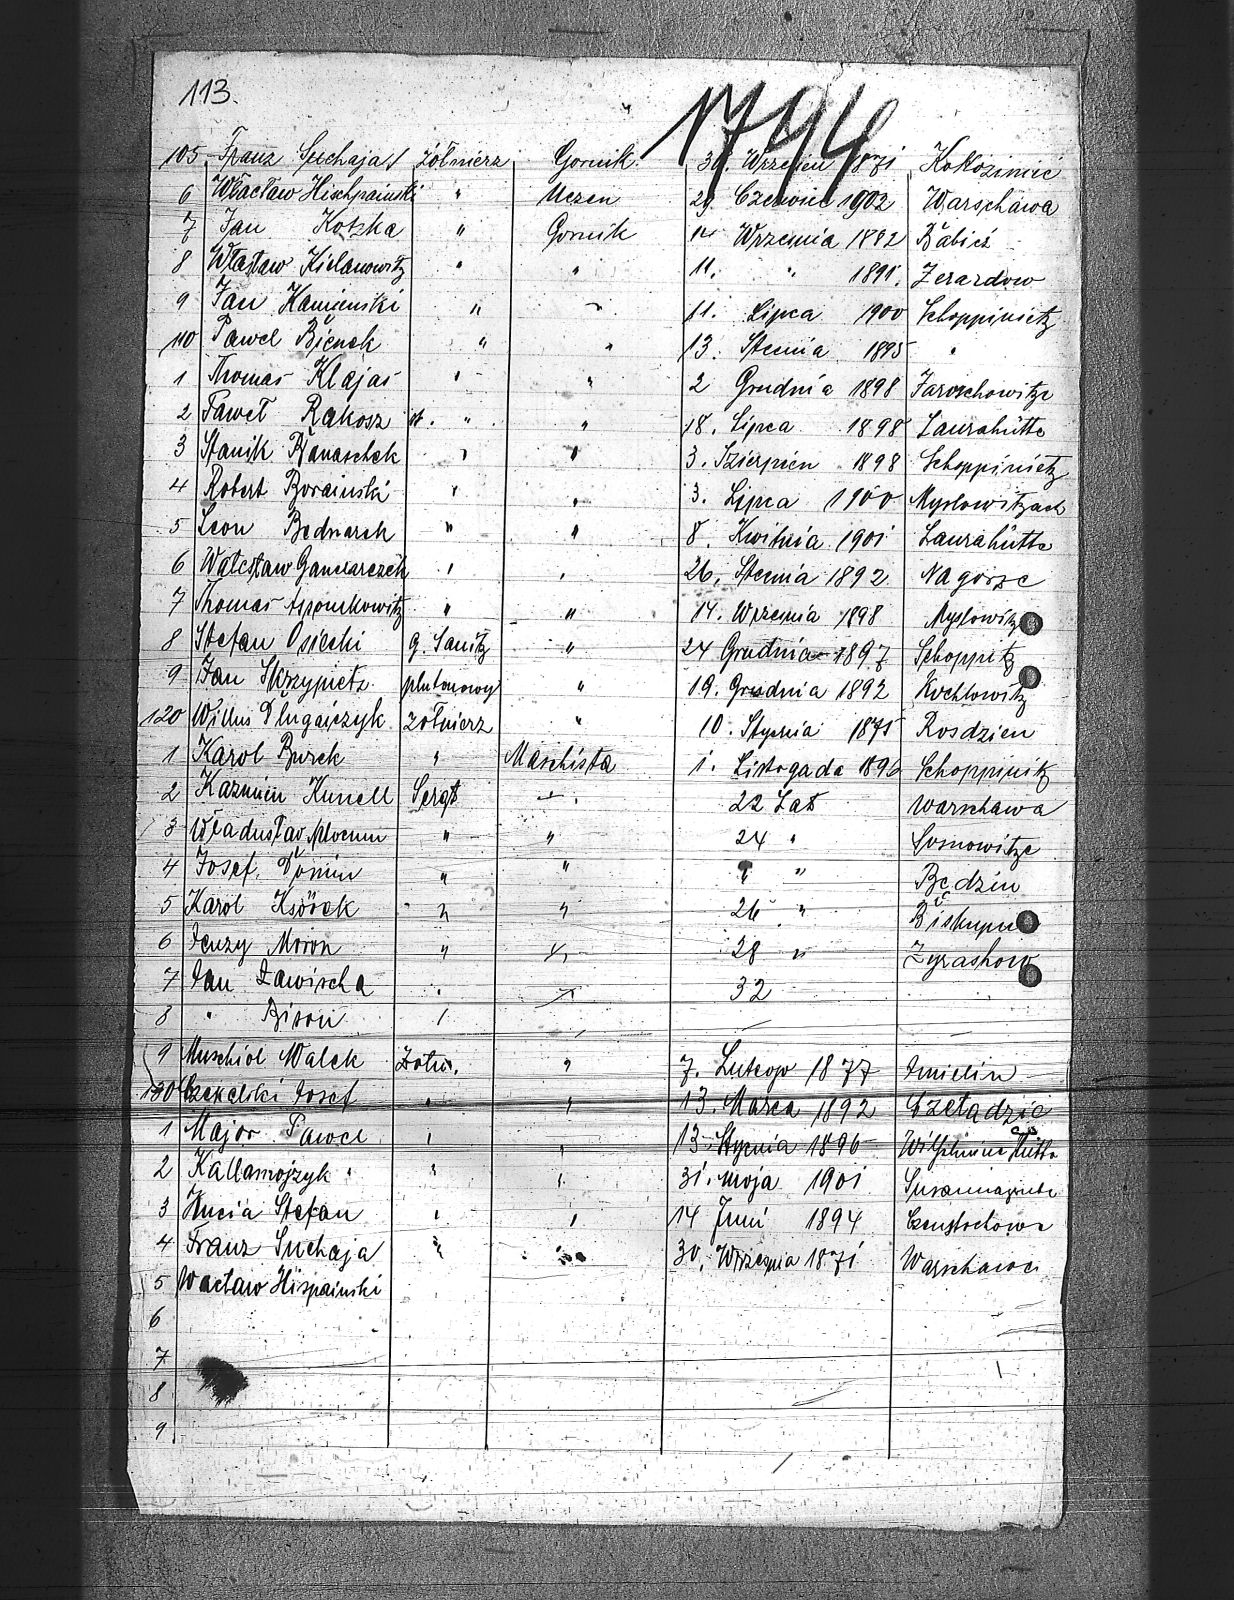 113.
1794
105 Franz Suchaja / żołnierz Gornik 30. Wrzesien 1871 Kokozinieć
6 Wracław Hischpainski " Uczen 29. Czerwiec 1902 Warschawa
7 Jan Kotzka " Gornik 14 Wrzesnia 1892 Babicz
8 Własław Kielanowitz " " 11. " 1891. Zerardow
9 Jan Kamienski " " 11. Lipca 1900 Schoppinietz
110 Pawel Bienek " " 13. Stecnia 1895 "
1 Thomas Klajas " " 2 Grudnia 1898 Jaroschowitze
2 Paweł Rakosz st. " " 18. Lipca 1898 Laurahütte
3 Stanik Banaschek " " 3. Szierpien 1898 Schoppinietz
4 Robert Borainski " " 3. Lipca 1900 Myslowitzach
5 Leon Bednarek " " 8. Kwitnia 1901 Laurahütte
6 Walcław Gancarczek " " 26. Stecnia 1892 Nagorze
7 Thomas " " 14. Wrzesnia 1898 Myslowitz
8 Stefan Osiecki g. Sanitz " 24 Grudnia 1897 Schoppitz
9 Jan Skrzypietz plutonowy " 19. Grudnia 1892 Kochlowitz
120 Willus Długaiczyk żołnierz " 10. Stycnia 1875 Rosdzien
1 Karol Burek " Maschista 1. Listogada 1896 Schoppinitz
2 Kazimin Kunell Sergt " 22 Lat Warschawa
3 Władusław Mocun " " 24 " Sosnowitze
4 Josef. Domin " " " Będzin
5 Karol Ksörek " " 26 " Biskupu
6 Jenzy Moron " " 28 " Zyrashow
7 Jan Zawischa " " 32
8 " Bison "
9 Muschiol Walek Żołn. " 7. Lutego 1877 Imielin
130 Czekelski Josef " " 13. Marca 1892 Czeladzie
1 Major Pawel " " 13 Stycnia 1896 Wilhelmine Hütte
2 Kallamojzyk " " " 31. moja 1901 Susannagrube
3 Kucia Stefan " " 14 Juni 1894 Czenstochowa
4 Franz Suchaja " " 30. Wrzesnia 1871 Warschawa
5 Wacław Hispainski
6
7
8
9